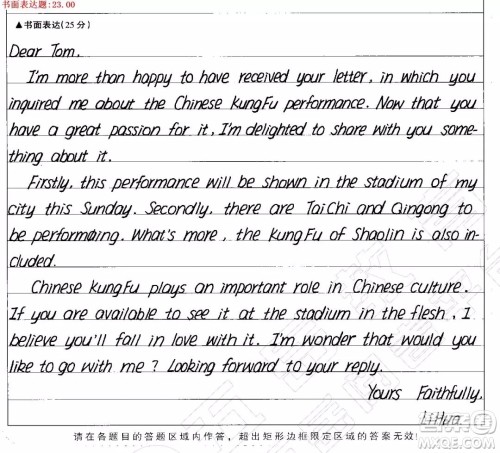 书面表达题:23.00
▲书面表达(25分)
Dear Tom,
I'm more than happy to have received your letter, in which you
inquired me about the Chinese KungFu performance. Now that you
have a great passion for it, I'm delighted to share with you some-
thing about it.
Firstly, this performance will be shown in the stadium of my
city this Sunday. Secondly, there are TaiChi and Qingong to
be performing. What's more, the KungFu of Shaolin is also in-
cluded.
Chinese KungFu plays an important role in Chinese culture.
If you are available to see it at the stadium in the flesh, I
believe you'll fall in love with it. I'm wonder that would you
like to go with me? Looking forward to your reply.
Yours Faithfully,
LiHua
请在各题目的答题区域内作答，超出矩形边框限定区域的答案无效!